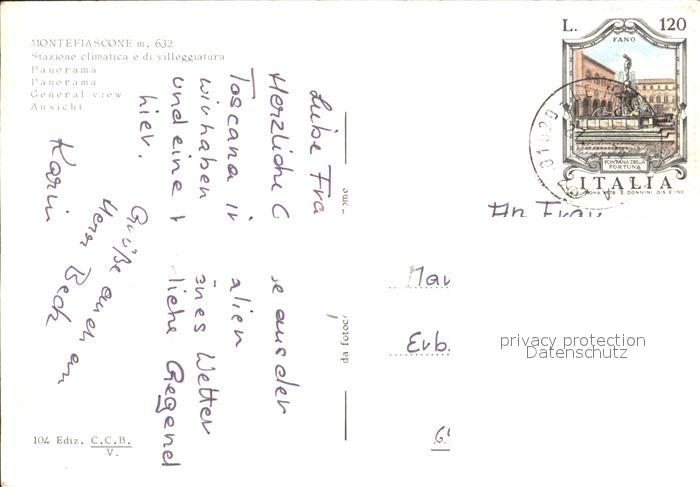 MONTEFIASCONE m. 632
Stazione climatica e di villeggiatura
Panorama
Panorama
General view
Ansicht
Liebe Fra
Herzliche G e aus der
Toscana i alien
wir haben önes Wetter
und eine liche Gegend
hier.
Grüße auch an
Herr Beck
Karin
104 Ediz. C.C.B.
V.
da fotoc
L. 120
FANO
FONTANA DELLA
FORTUNA
ITALIA
An Frau
Mau
Erb
privacy protection
Datenschutz